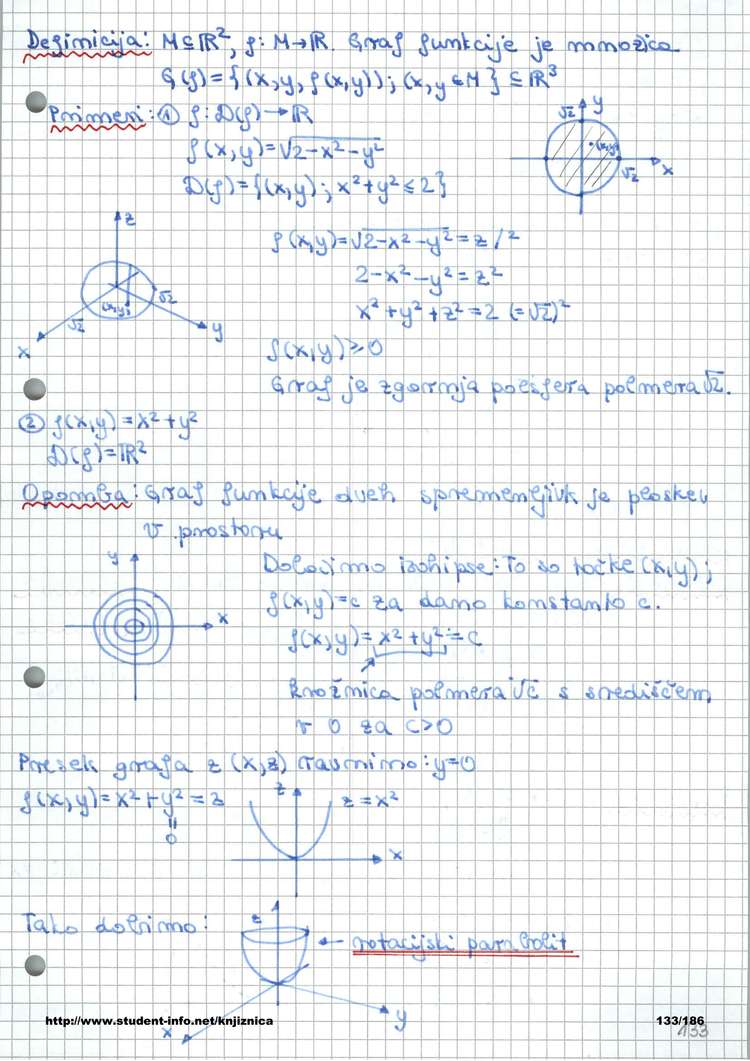 Definicija: M⊆ℝ², f: M→ℝ. Graf funkcije je množica
G(f)={(x,y,f(x,y)); (x,y∈M} ⊆ℝ³
Primeri: ① f:D(f)→ℝ
f(x,y)=√2-x²-y²
D(f)={(x,y); x²+y²≤2}
y
√2
(x,y)
√2
x
z
√2
(x,y)
√2
x
y
f(x,y)=√2-x²-y²=z /²
2-x²-y²=z²
x²+y²+z²=2 (=√2)²
f(x,y)≥0
Graf je zgornja polsfera polmera √2.
② f(x,y)=x²+y²
D(f)=ℝ²
Opomba: Graf funkcije dveh spremenljivk je ploskev
v prostoru
y
x
Določimo izohipse: To so točke (x,y);
f(x,y)=c za dano konstanto c.
f(x,y)=x²+y²=c
krožnica polmera √c s središčem
v 0 za c>0
Presek grafa z (x,z) ravnino: y=0
f(x,y)=x²+y²=z
0
z
z=x²
x
Tako dobimo:
z
rotacijski paraboloit
x
y
http://www.student-info.net/knjiznica
133/186
133